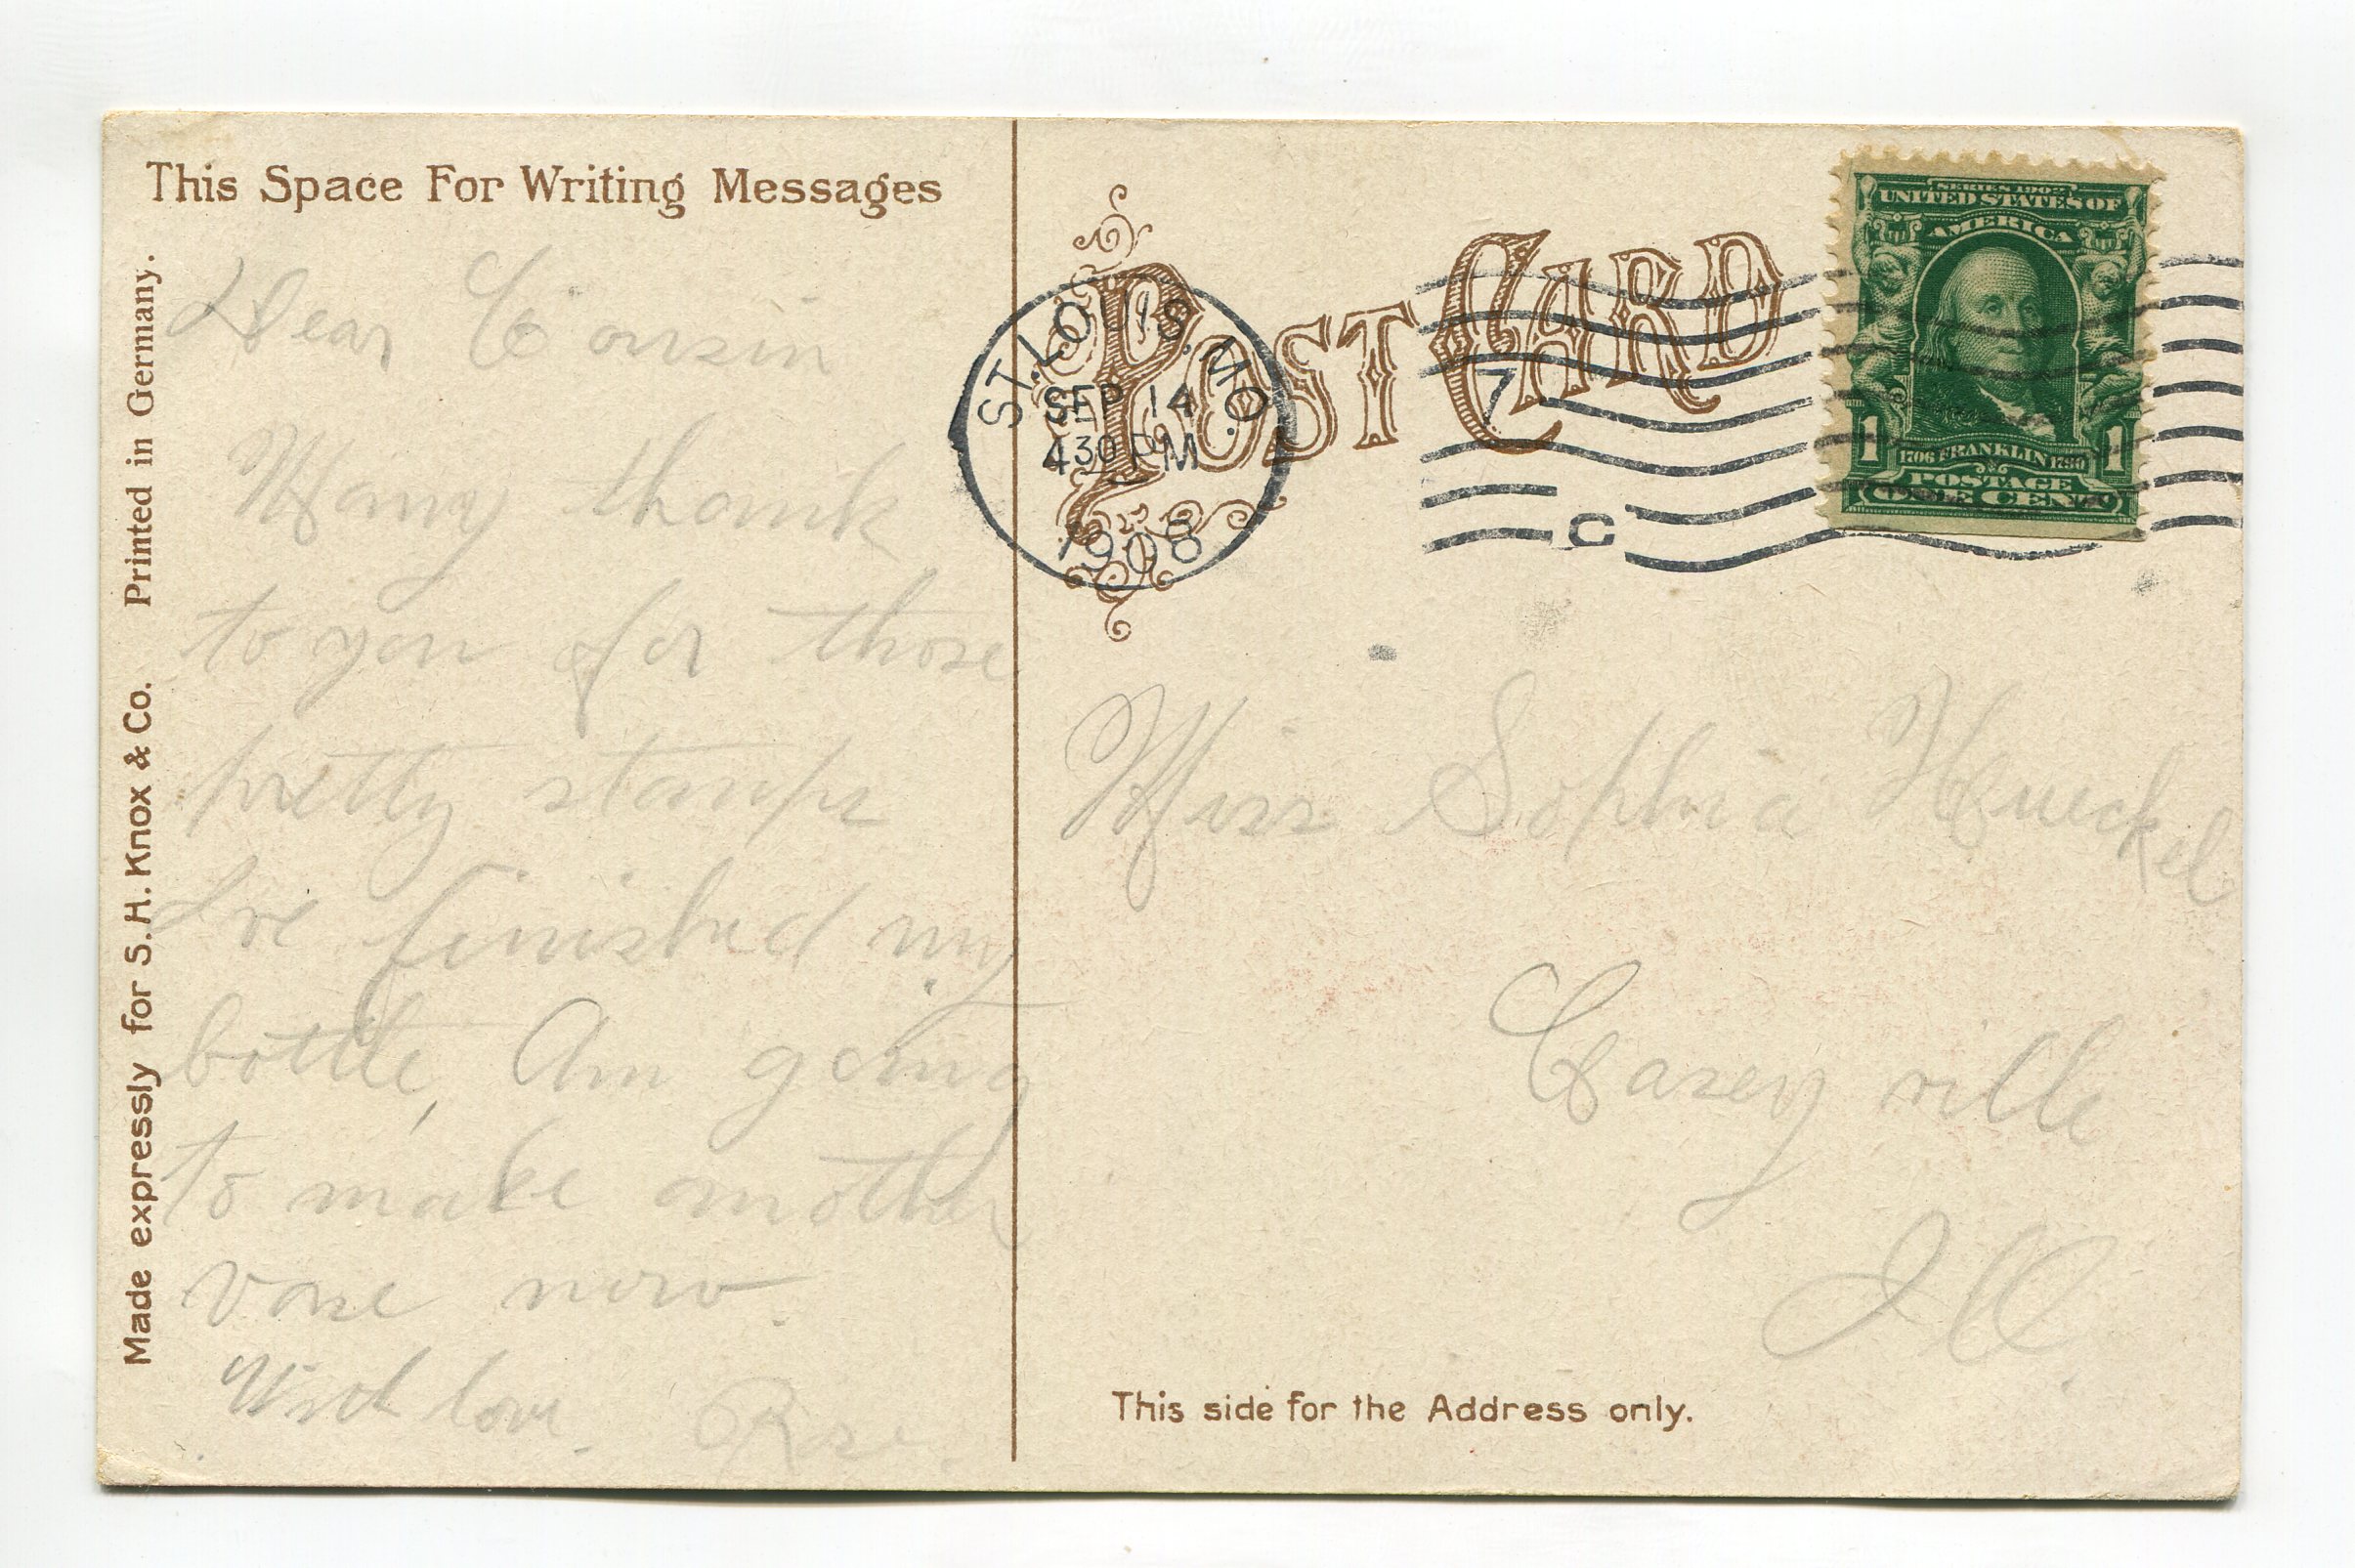 This Space For Writing Messages
Made expressly for S. H. Knox & Co. Printed in Germany.
Dear Cousin
Many thank
to you for those
pretty stamps
I've finished my
bottle, Am going
to make another
vase now.
With love.
POST CARD
ST. LOUIS, MO.
SEP 14
430 PM
1908
7
C
SERIES 1902
UNITED STATES OF
AMERICA
1 1706 FRANKLIN 1790 1
POSTAGE
ONE CENT
Miss Sophia Hueckel
Caseyville
Ill.
This side for the Address only.